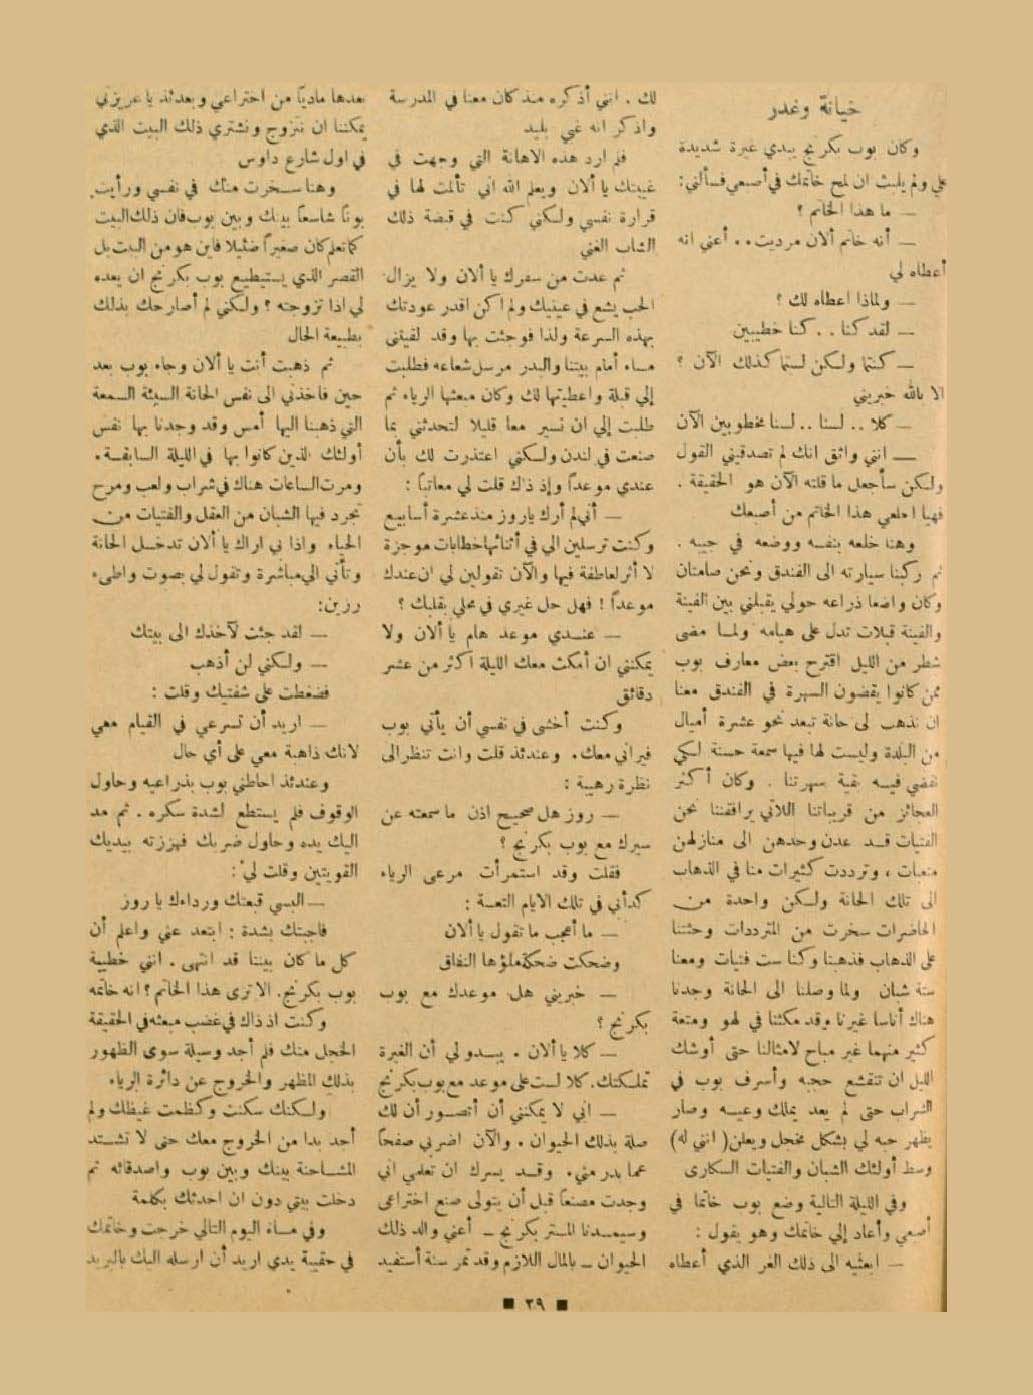 خيانة وغدر
وكان بوب بكرنج يبدي غيرة شديدة
علي ولم يلبث ان لمح خاتمك في أصبعي فسألني:
— ما هذا الخاتم ؟
— أنه خاتم ألان مرديت.. أعني انه
أعطاه لي
— ولماذا اعطاه لك ؟
— لقد كنا .. كنا خطيبين
— كنتما ولكن لستما كذلك الآن ؟
الا بالله خبريني
— كلا .. لسنا .. لسنا مخطوبين الآن
— انني واثق انك لم تصدقيني القول
ولكن سأجعل ما قلته الآن هو الحقيقة .
فهيا اخلعي هذا الخاتم من أصبعك
وهنا خلعه بنفسه ووضعه في جيبه .
ثم ركبنا سيارته الى الفندق ونحن صامتان
وكان واضعا ذراعه حولي يقبلني بين الفينة
والفينة قبلات تدل على هيامه ولما مضى
شطر من الليل اقترح بعض معارف بوب
ممن كانوا يقضون السهرة في الفندق معنا
ان نذهب الى حانة تبعد نحو عشرة أميال
من البلدة وليست لها فيها سمعة حسنة لكي
نقضي فيه بقية سهرتنا . وكان أكثر
العجائز من قريباتنا اللاتي يرافقننا نحن
الفتيات قد عدن وحدهن الى منازلهن
متعبات ، وترددت كثيرات منا في الذهاب
الى تلك الحانة ولكن واحدة من
الحاضرات سخرت من المترددات وحثتنا
على الذهاب فذهبنا وكنا ست فتيات ومعنا
ستة شبان ولما وصلنا الى الحانة وجدنا
هناك أناسا غيرنا وقد مكثنا في لهو ومتعة
كثير منهما غير مباح لامثالنا حتى أوشك
الليل ان تنقشع حجبه وأسرف بوب في
الشراب حتى لم يعد يملك وعيه وصار
يظهر حبه لي بشكل مخجل ويعلن( انني له)
وسط أولئك الشبان والفتيات السكارى
وفي الليلة التالية وضع بوب خاتما في
أصبعي وأعاد إلي خاتمك وهو يقول :
— ابعثيه الى ذلك الغر الذي أعطاه
لك . انني أذكره منذ كان معنا في المدرسة
واذكر انه غبي بليد
فلم ارد هذه الاهانة التي وجهت في
غيبتك يا ألان ويعلم الله اني تألمت لها في
قرارة نفسي ولكني كنت في قبضة ذلك
الشاب الغني
ثم عدت من سفرك يا ألان ولا يزال
الحب يشع في عينيك ولم اكن اقدر عودتك
بهذه السرعة ولذا فوجئت بها وقد لقيتني
مساء أمام بيتنا والبدر مرسل شعاعه فطلبت
إلي قبلة واعطيتها لك وكان مبعثها الرياء ثم
طلبت إلي ان نسير معا قليلا لتحدثني بما
صنعت في لندن ولكني اعتذرت لك بأن
عندي موعداً وإذ ذاك قلت لي معاتباً :
— أني لم أرك يا روز منذ عشرة أسابيع
وكنت ترسلين الي في أثنائها خطابات موجزة
لا أثر لعاطفة فيها والآن تقولين لي ان عندك
موعداً ! فهل حل غيري في محلي بقلبك ؟
— عندي موعد هام يا ألان ولا
يمكنني ان أمكث معك الليلة اكثر من عشر
دقائق
وكنت أخشى في نفسي أن يأتي بوب
فيراني معك . وعندئذ قلت وانت تنظر الى
نظرة رهيبة :
— روز هل صحيح اذن ما سمعته عن
سيرك مع بوب بكرنج ؟
فقلت وقد استمرأت مرعى الرياء
كدأبي في تلك الايام التعسة :
— ما أعجب ما تقول يا ألان
وضحكت ضحكة ملؤها النفاق
— خبريني هل موعدك مع بوب
بكرنج ؟
— كلا يا ألان . يبدو لي أن الغيرة
تملكتك . كلا لست على موعد مع بوب بكرنج
— اني لا يمكنني أن أتصور أن لك
صلة بذلك الحيوان . والآن اضربي صفحاً
عما بدر مني . وقد يسرك ان تعلمي اني
وجدت مصنعاً قبل أن يتولى صنع اختراعى
وسيمدنا المستر بكرنج — أعني والد ذلك
الحيوان — بالمال اللازم وقد تمر سنة أستفيد
بعدها مادياً من اختراعي وبعدئذ يا عزيزتي
يمكننا ان نتزوج ونشتري ذلك البيت الذي
في اول شارع داوس
وهنا سخرت منك في نفسي ورأيت
بوناً شاسعاً بينك وبين بوب فان ذلك البيت
كما تعلم كان صغيراً ضئيلا فاين هو من البيت بل
القصر الذي يستطيع بوب بكرنج ان يعده
لي اذا تزوجته ؟ ولكني لم أصارحك بذلك
بطبيعة الحال
ثم ذهبت أنت يا ألان وجاء بوب بعد
حين فاخذني الى نفس الحانة السيئة السمعة
التي ذهبنا اليها أمس وقد وجدنا بها نفس
أولئك الذين كانوا بها في الليلة السابقة .
ومرت الساعات هناك في شراب ولعب ومرح
تجرد فيها الشبان من العقل والفتيات من
الحياء واذا بي اراك يا ألان تدخل الحانة
وتأتي الي مباشرة وتقول لي بصوت واطىء
رزين:
— لقد جئت لآخذك الى بيتك
— ولكني لن أذهب
فضغطت على شفتيك وقلت :
— اريد أن تسرعي في القيام معي
لانك ذاهبة معي على أي حال
وعندئذ احاطني بوب بذراعيه وحاول
الوقوف فلم يستطع لشدة سكره . ثم مد
اليك يده وحاول ضربك فهززته بيديك
القويتين وقلت لي :
— البسي قبعتك ورداءك يا روز
فاجبتك بشدة : ابتعد عني واعلم أن
كل ما كان بيننا قد انتهى . انني خطيبة
بوب بكرنج. الا ترى هذا الخاتم ؟ انه خاتمه
وكنت اذ ذاك في غضب مبعثه في الحقيقة
الخجل منك فلم أجد وسيلة سوى الظهور
بذلك المظهر والخروج عن دائرة الرياء
ولكنك سكنت وكظمت غيظك ولم
أجد بدا من الخروج معك حتى لا تشتد
المشاحنة بينك وبين بوب واصدقائه ثم
دخلت بيتي دون ان احدثك بكلمة
وفي مساء اليوم التالي خرجت وخاتمك
في حقيبة يدي اريد أن ارسله اليك بالبريد
■ ٢٩ ■